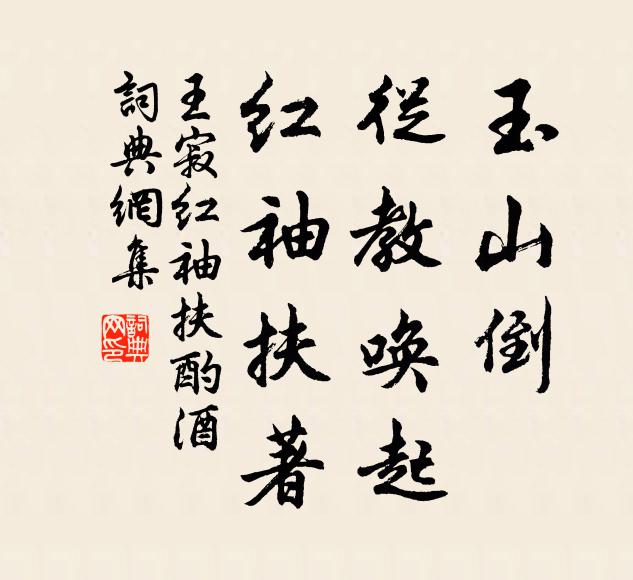 玉山倒
從教喚起
紅袖扶著
王寂紅袖扶酌酒
詞典網集
詞典
网印